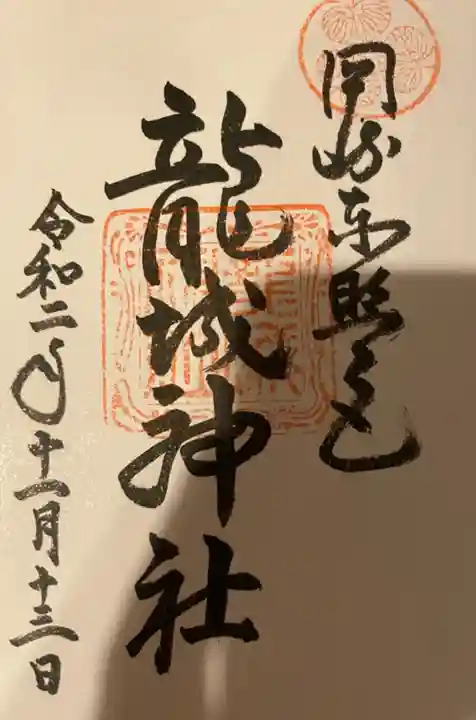 岡崎東照宮
龍城神社
令和二年十一月十三日